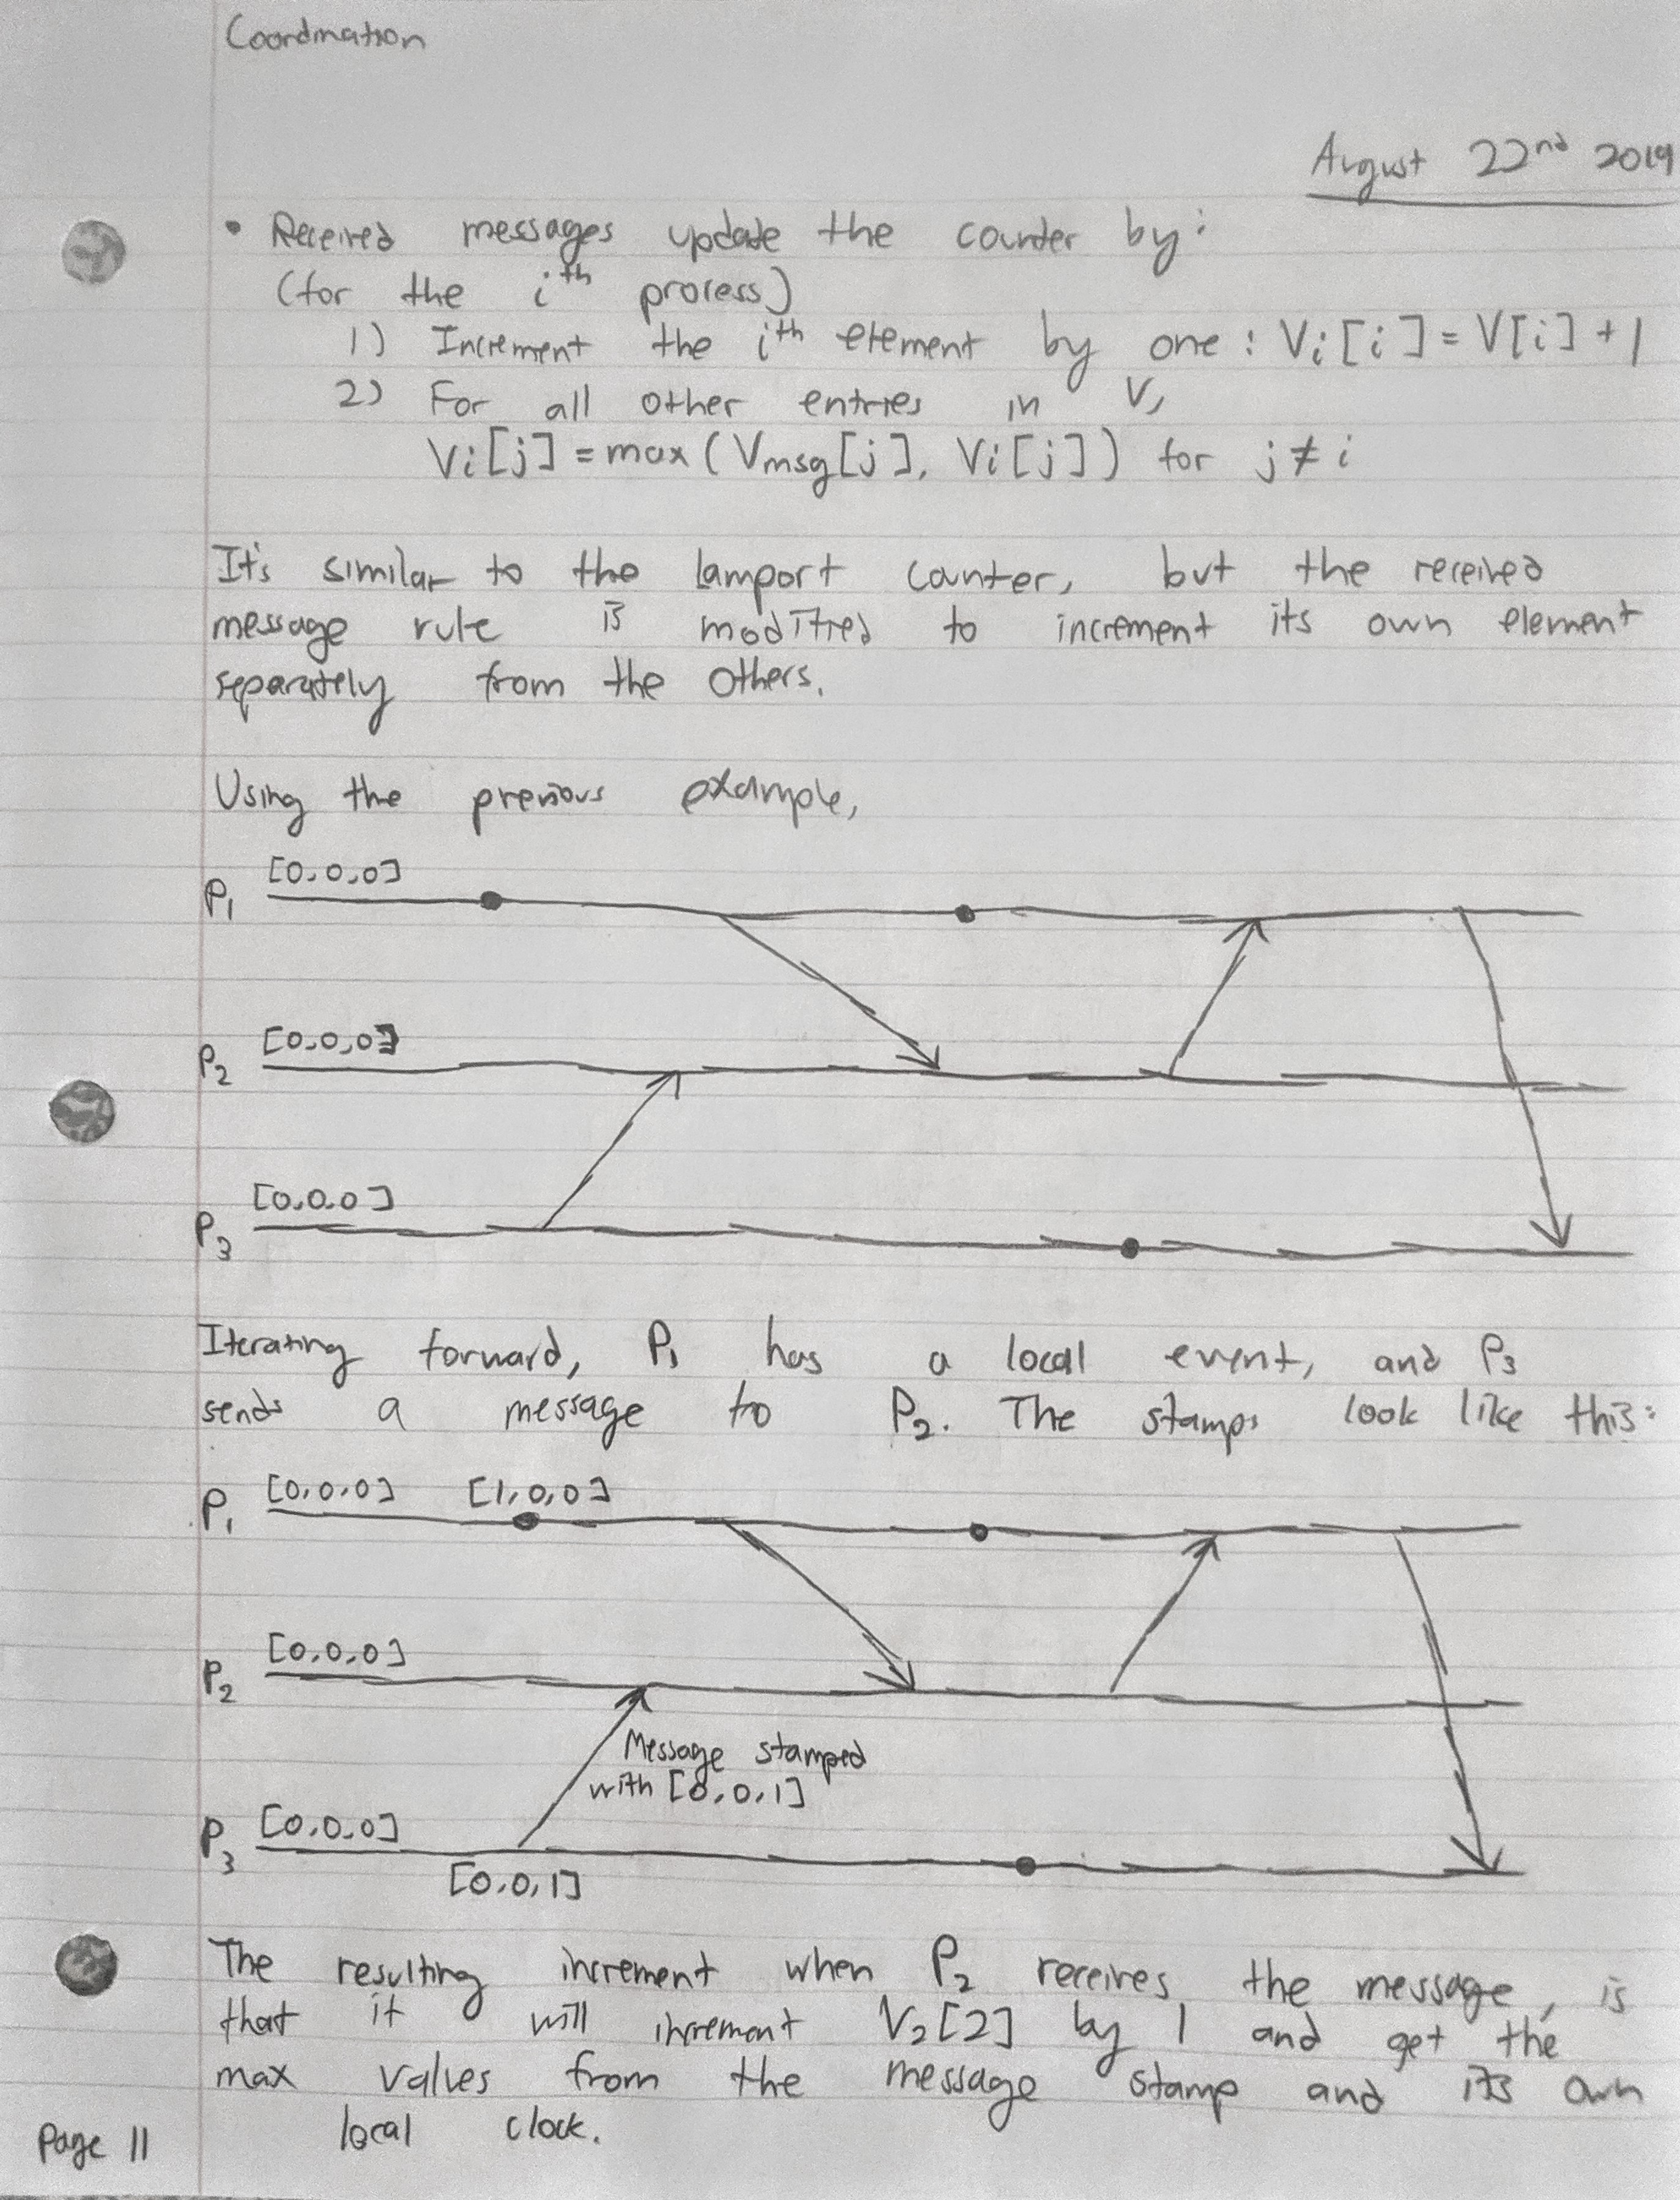 Coordination
August 22nd 2019
• Received messages update the counter by:
(for the ith process)
1) Increment the ith element by one: Vi[i] = V[i] + 1
2) For all other entries in V,
Vi[j] = max(Vmsg[j], Vi[j]) for j ≠ i
It's similar to the lamport counter, but the received
message rule is modified to increment its own element
separately from the others.
Using the previous example,
[0,0,0]
P1
[0,0,0]
P2
[0,0,0]
P3
Iterating forward, P1 has a local event, and P3
sends a message to P2. The stamps look like this:
[0,0,0] [1,0,0]
P1
[0,0,0]
P2
Message stamped
with [0,0,1]
[0,0,0]
P3
[0,0,1]
The resulting increment when P2 receives the message, is
that it will increment V2[2] by 1 and get the
max values from the message stamp and its own
local clock.
Page 11